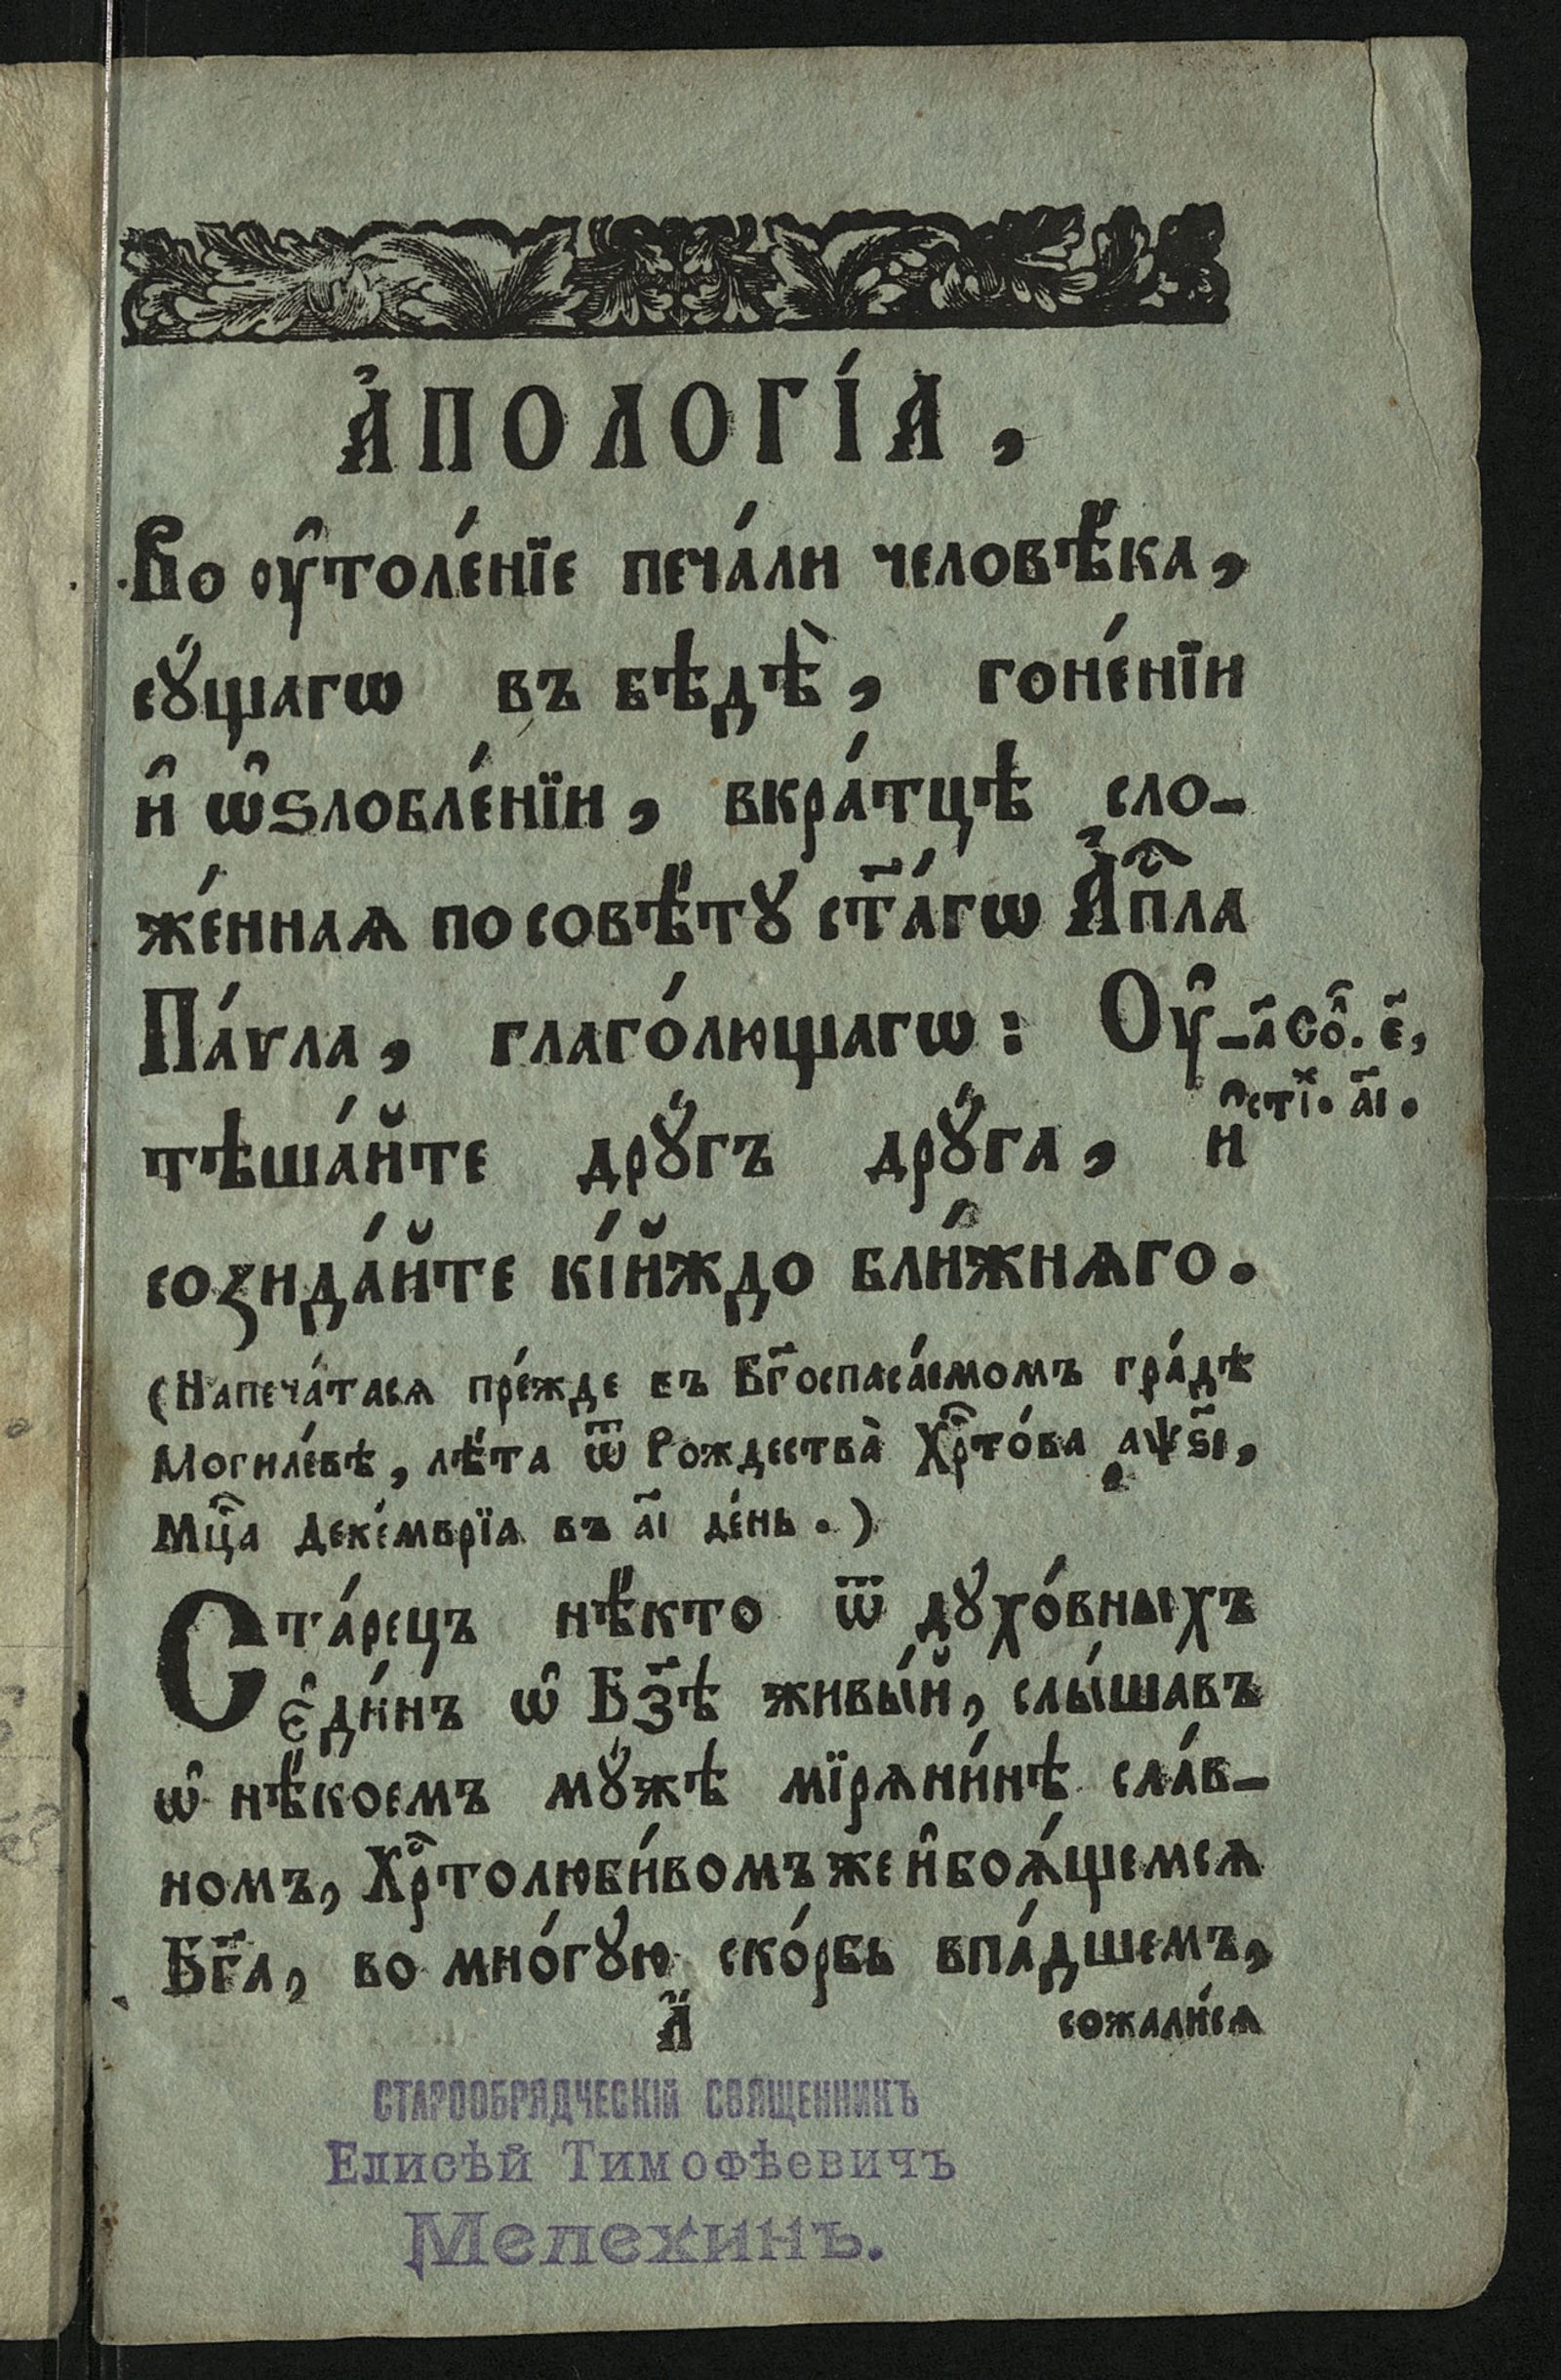 А҆ПОЛОГІ́А,
Во ᲂу҆толе́нїе печа́ли человѣ́ка,
сꙋ́щагѡ въ бѣдѣ̀, гоне́нїи
и҆ ѡ҆ѕлобле́нїи, вкра́тцѣ сло-
же́ннаѧ по совѣ́тꙋ ст҃а́гѡ А҆пⷭ҇ла
Па́ѵла, глаго́лющагѡ: Оу҆-
а҃ Со̑. є҃,
стⷯі. а҃і.
тѣша́йте дрꙋ́гъ дрꙋ́га, и҆
созида́йте кі́йждо бли́жнѧго.
(Напеча́тасѧ пре́жде въ Бг҃оспаса́емомъ гра́дѣ
Могиле́вѣ, лѣ́та ѿ Рождества̀ Хрⷭ҇то́ва ҂аѱѕ҃і,
Мцⷭ҇а Деке́мврїа въ а҃і де́нь.)
Ста́рецъ нѣ́кто ѿ дꙋхо́вныхъ
є҆ди́нъ ѡ҆ Бз҃ѣ живы́й, слы́шавъ
ѡ҆ нѣ́коемъ мꙋ́жѣ мїрѧни́нѣ сла́в-
номъ, Хрⷭ҇толюби́вомъ же и҆ боѧ́щемсѧ
Бг҃а, во мно́гꙋю ско́рбь впа́дшемъ,
А҃ сожали́сѧ
СТАРООБРЯДЧЕСКІЙ СВЯЩЕННИКЪ
Елисѣй Тимофѣевичъ
Мелехинъ.